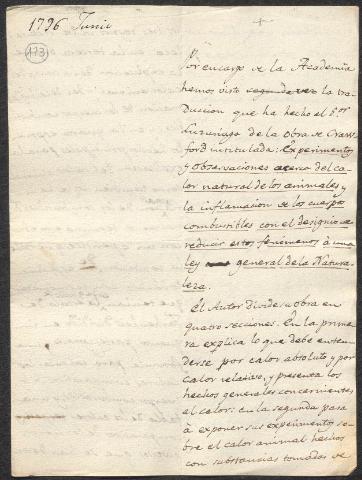 1796 Junio
+
173
Por encargo de la Academia
hemos visto segunda vez la tra-
duccion que ha hecho el S.or
Luzuriaga de la obra de Craw
ford intitulada: Experimentos
y observaciones acerca del ca-
lor natural de los animales y
la inflamacion de los cuerpos
combustibles con el designio de
reducir estos fenomenos à una
ley general de la Natura-
leza.
El Autor divide su obra en
quatro secciones. En la prime
ra explica lo que debe enten-
derse por calor absoluto y por
calor relativo, y presenta los
hechos generales concernientes
el calor: en la segunda pasa
à exponer sus experimentos so-
bre el calor animal hechos
con substancias tomadas de